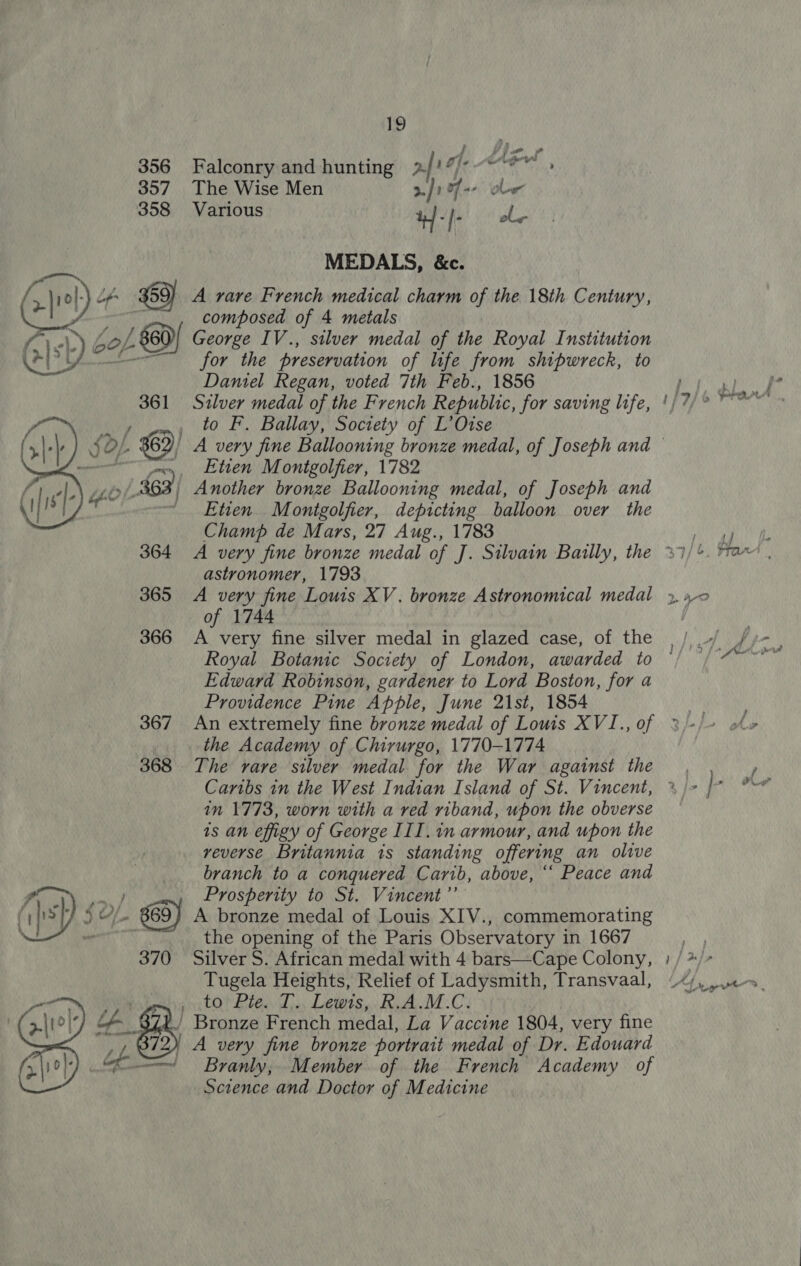 19
356 Falconry and hunting 2/10/-
357 The Wise Men
358 Various
MEDALS, &c.
359 A rare French medical charm of the 18th Century,
composed of 4 metals
360 George IV., silver medal of the Royal Institution
for the preservation of life from shipwreck, to
Daniel Regan, voted 7th Feb., 1856
361 Silver medal of the French Republic, for saving life,
to F. Ballay, Society of L'Oise
362 A very fine Ballooning bronze medal, of Joseph and
Etien Montgolfier, 1782
363 Another bronze Ballooning medal, of Joseph and
Etien Montgolfier, depicting balloon over the
Champ de Mars, 27 Aug., 1783
364 A very fine bronze medal of J. Silvain Bailly, the
astronomer, 1793
365 A very fine Louis XV. bronze Astronomical medal
of 1744
366 A very fine silver medal in glazed case, of the
Royal Botanic Society of London, awarded to
Edward Robinson, gardener to Lord Boston, for a
Providence Pine Apple, June 21st, 1854
367 An extremely fine bronze medal of Louis XVI., of
the Academy of Chirurgo, 1770-1774
368 The rare silver medal for the War against the
Caribs in the West Indian Island of St. Vincent,
in 1773, worn with a red riband, upon the obverse
is an effigy of George III. in armour, and upon the
reverse Britannia is standing offering an olive
branch to a conquered Carib, above, “ Peace and
Prosperity to St. Vincent ”
369 A bronze medal of Louis XIV., commemorating
the opening of the Paris Observatory in 1667
370 Silver S. African medal with 4 bars—Cape Colony,
Tugela Heights, Relief of Ladysmith, Transvaal,
to Pte. T. Lewis, R.A.M.C.
371 Bronze French medal, La Vaccine 1804, very fine
372 A very fine bronze portrait medal of Dr. Edouard
Branly, Member of the French Academy of
Science and Doctor of Medicine